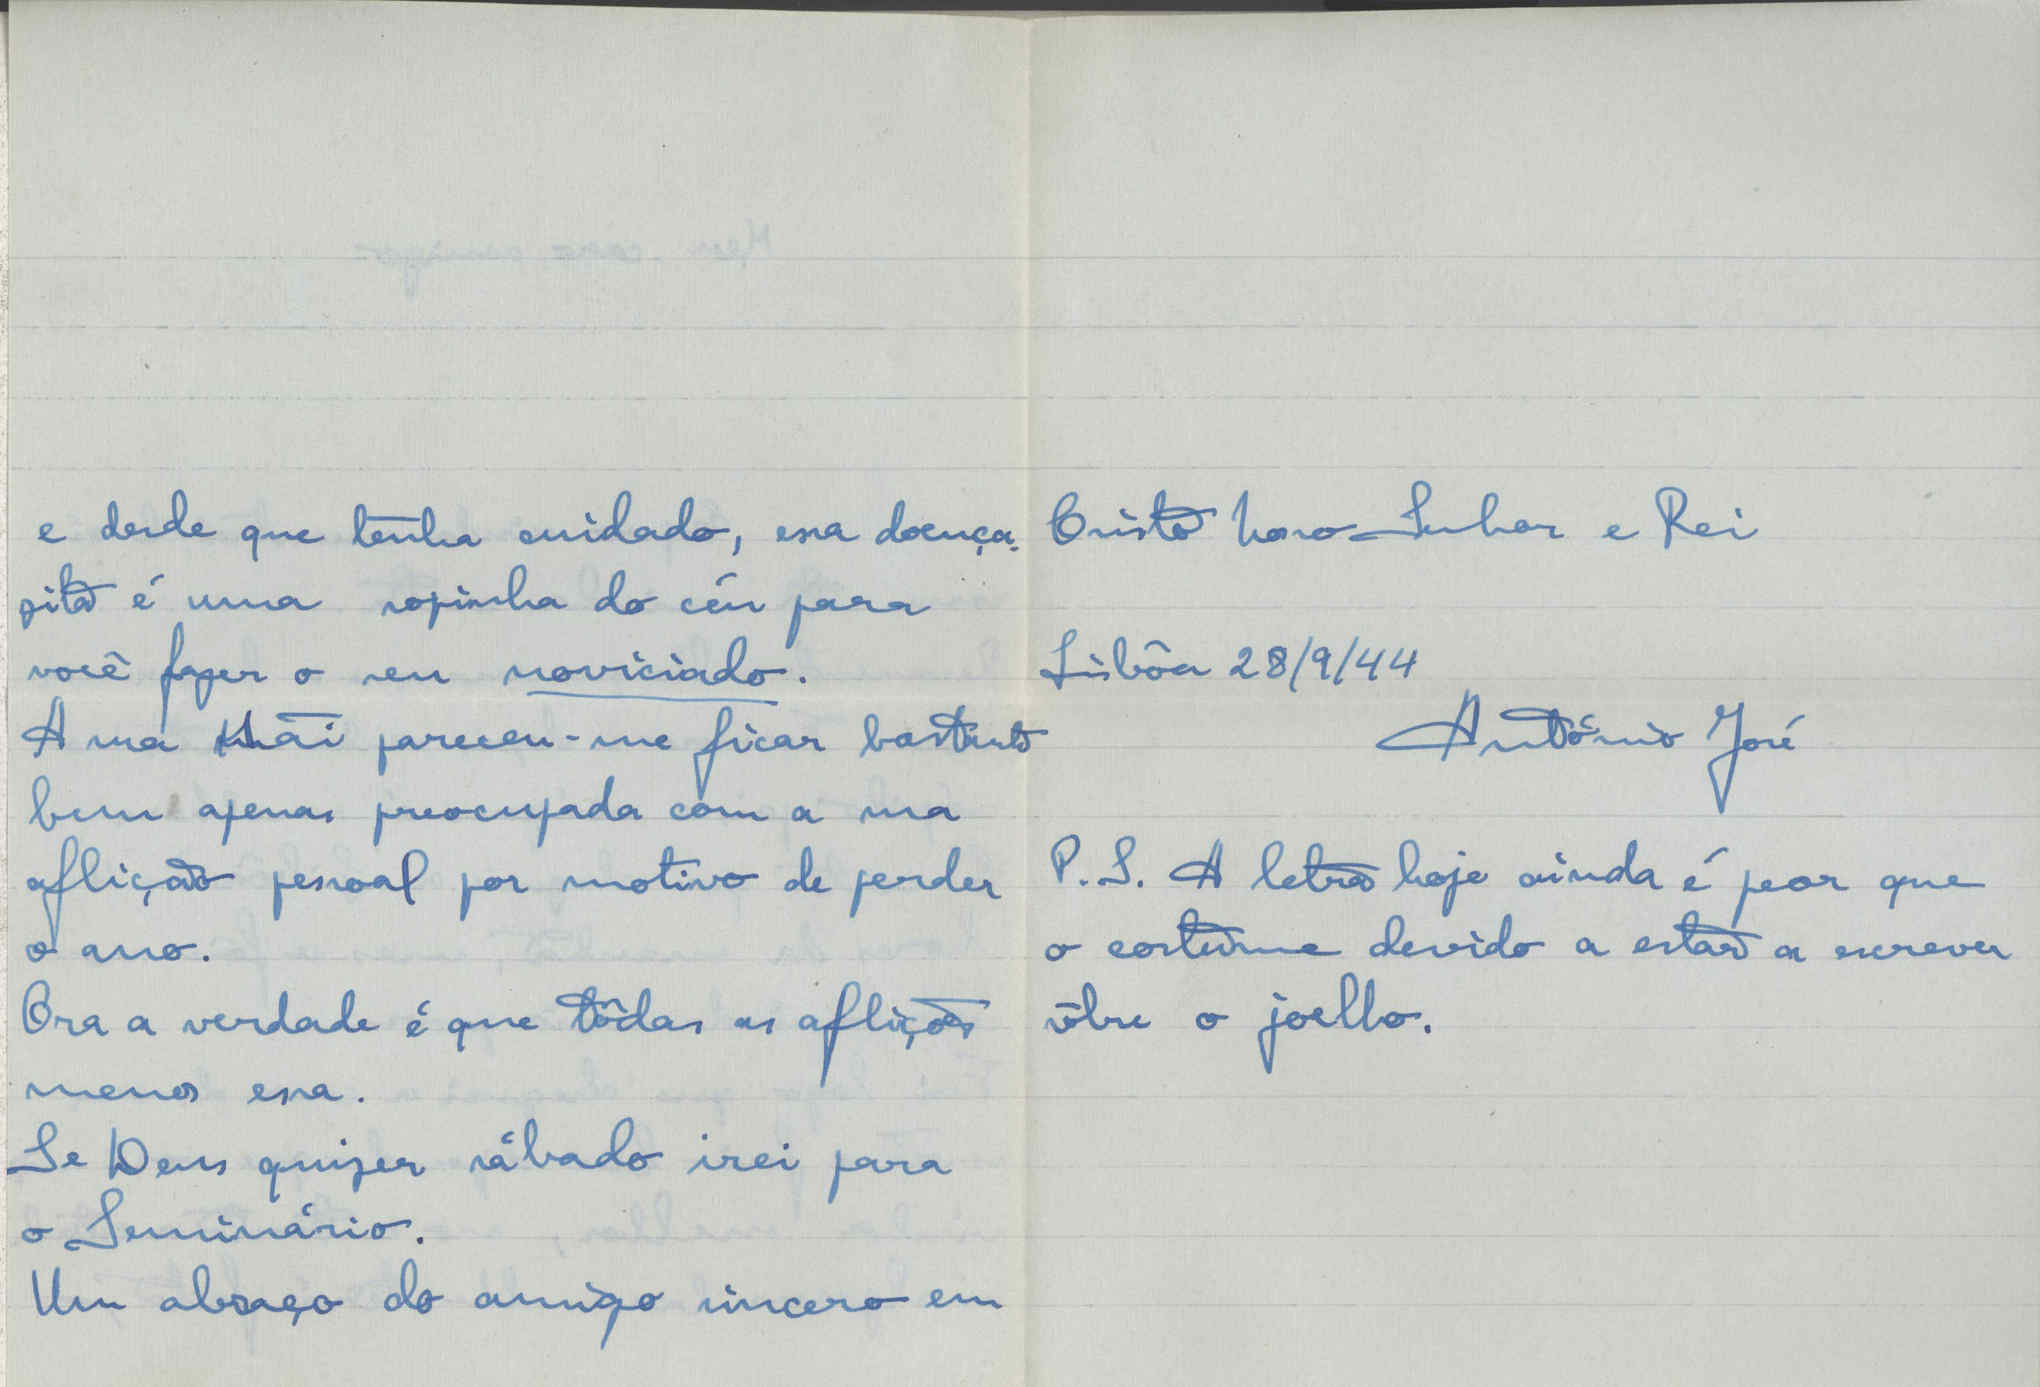 e desde que tenha cuidado, essa doença-
zita é uma sopinha do céu para
você fazer o seu noviciado.
A sua Mãi pareceu-me ficar bastante
bem apenas preocupada com a sua
aflição pessoal por motivo de perder
o ano.
Ora a verdade é que tôdas as aflições
menos essa.
Se Deus quizer sábado irei para
o Seminário.
Um abraço do amigo sincero em
Cristo Nosso Senhor e Rei
Lisbôa 28/9/44
António José
P.S. A letra hoje ainda é peor que
o costume devido a estar a escrever
sôbre o joelho.